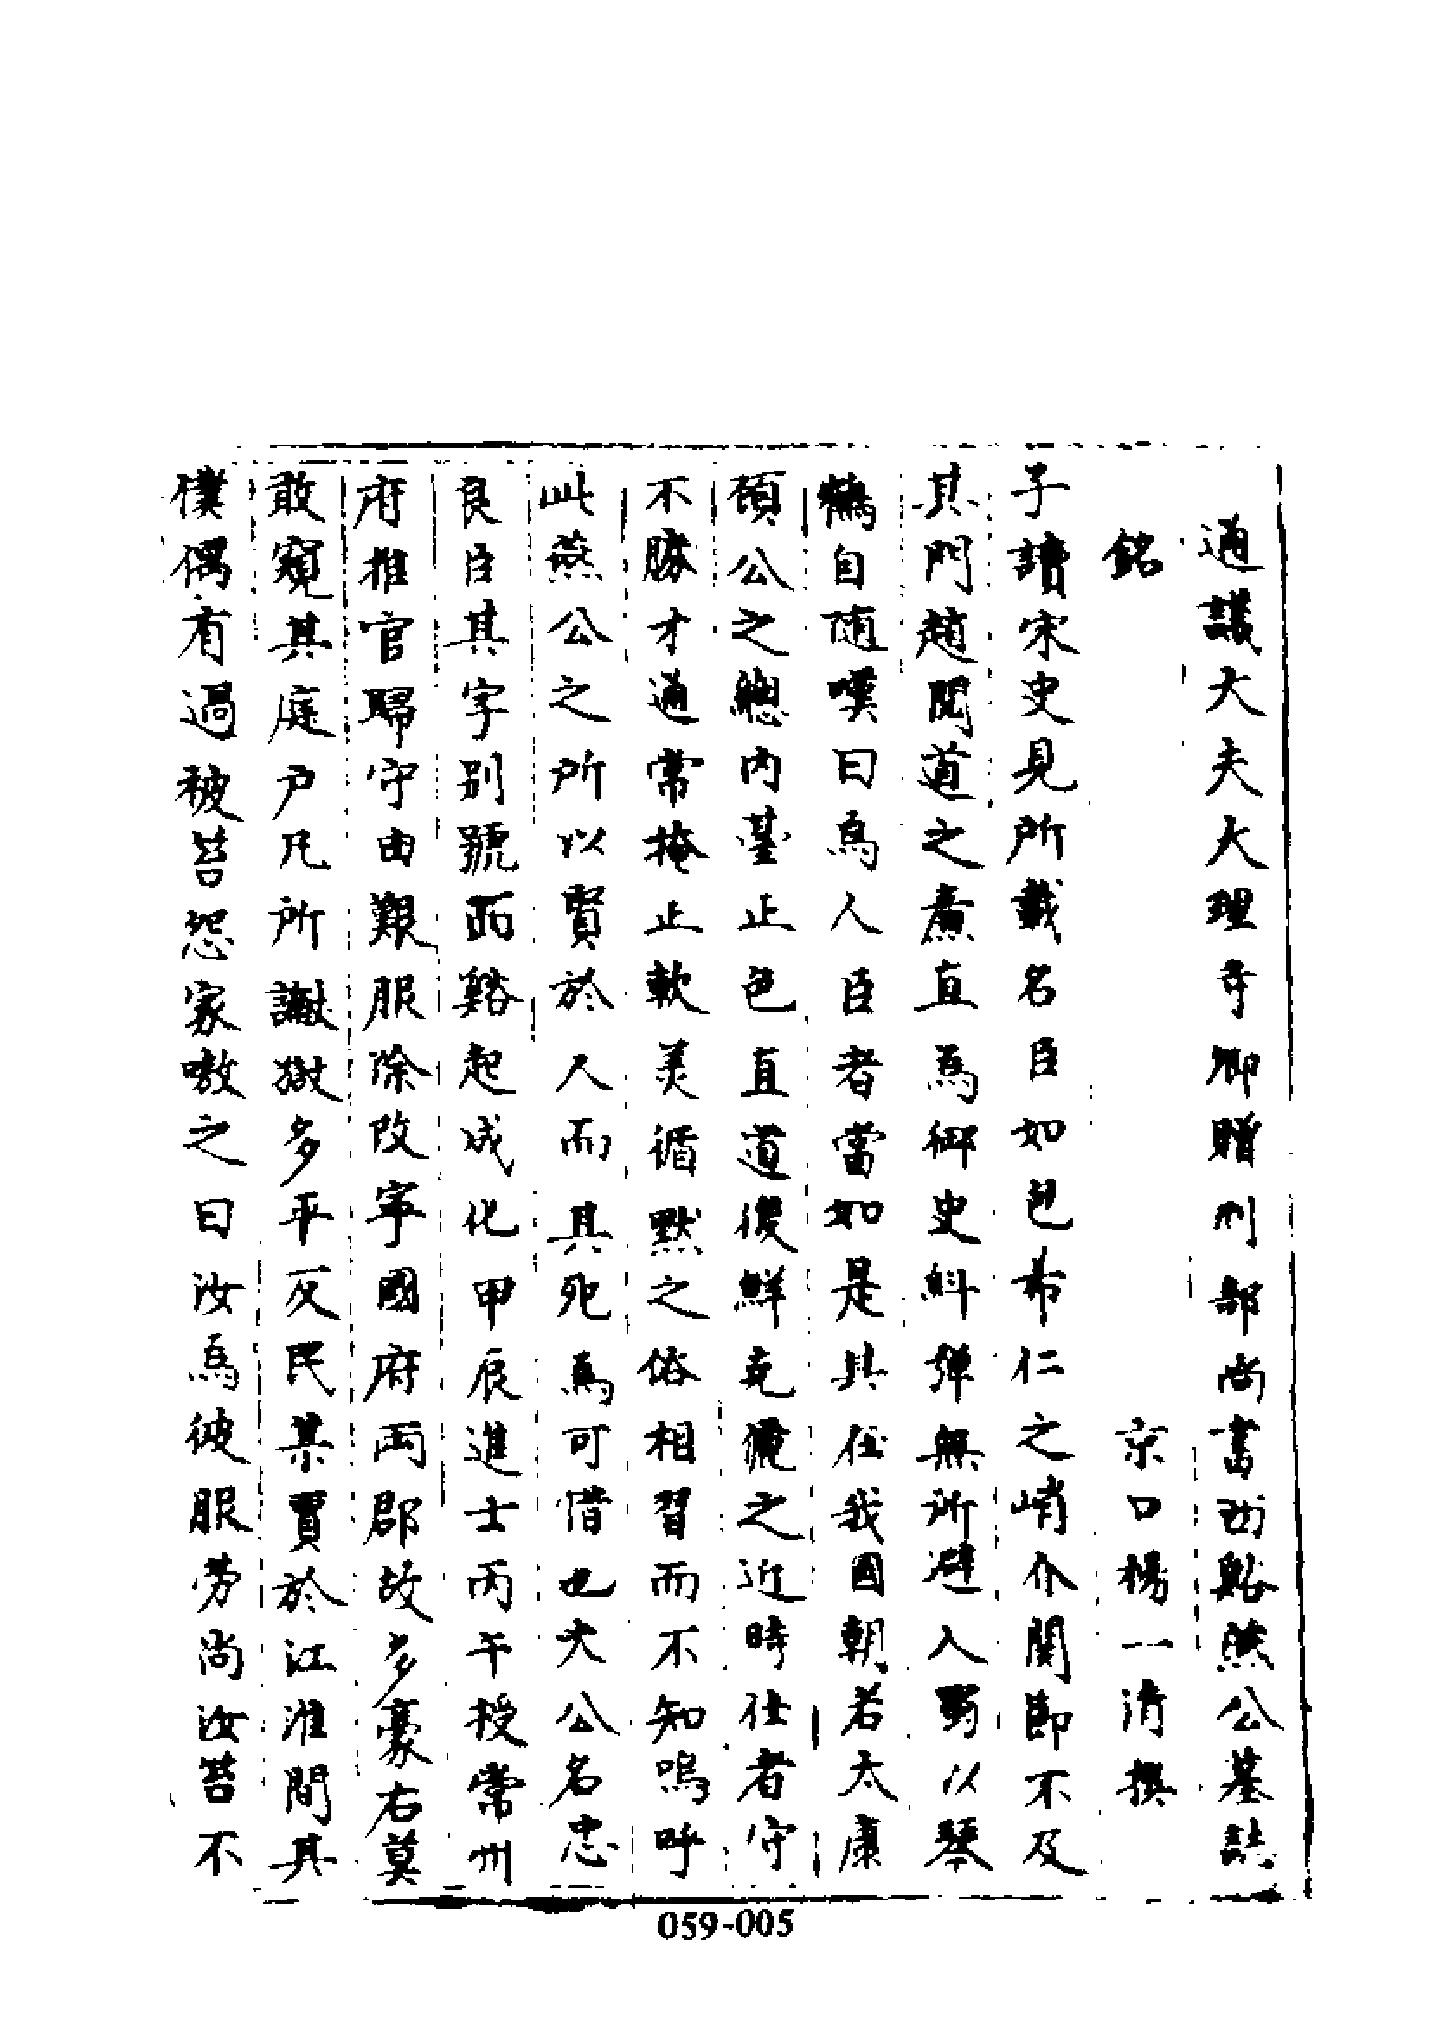 通議大夫大理寺卿贈刑部尚書西谿燕公墓誌
銘 京口楊一清撰
予讀宋史見所載名臣如包希仁之峭介關節不及
其門趙閱道之廉直爲御史糾彈無所避入蜀以琴
鶴自随嘆曰爲人臣者當如是其在我國朝若太康
顧公之總內臺正色直道復鮮克儷之近時仕者守
不勝才通常掩正軟美循默之俗相習而不知嗚呼
此燕公之所以賢於人而其死爲可惜也夫公名忠
良臣其字別號西谿起成化甲辰進士丙午授常州
府推官歸守由艱服除改寧國府兩郡故多豪右莫
敢窺其庭户凡所讞獄多平反民某賈於江淮間其
僕偶有過被笞怨家嗾之曰汝爲彼服劳尚汝笞不
059-005